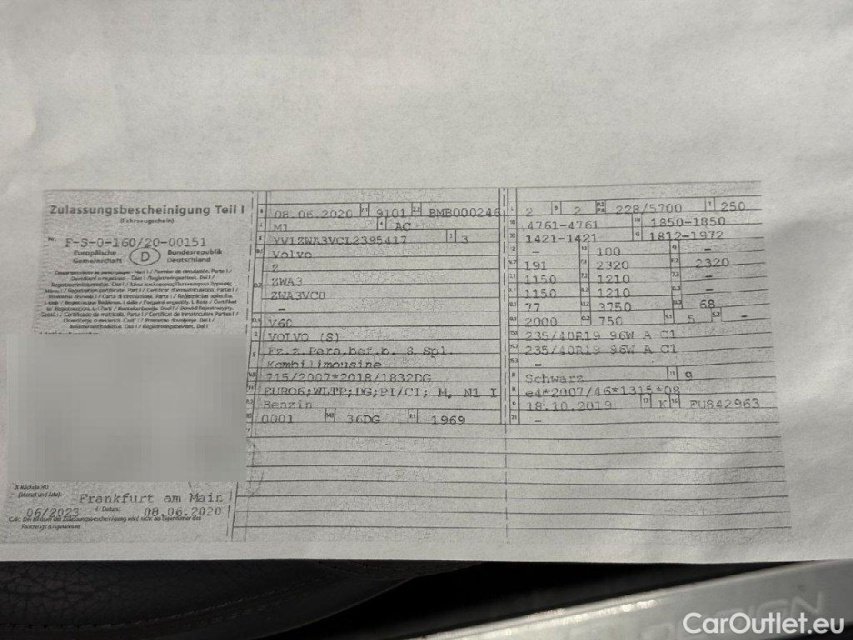 Zulassungsbescheinigung Teil I
(Fahrzeugschein)
Nr. F-S-0-160/20-00151
Europäische Gemeinschaft D Bundesrepublik Deutschland
Frankfurt am Main
06/2023 08.06.2020
08.06.2020 9101 BMB000246
M1 AC
YV1ZWA3VCL2395417 3
Volvo
Z
ZWA3
ZWA3VC0
-
V60
VOLVO (S)
Fz.z.Pers.bef.b. 8 Spl.
Kombilimousine
715/2007*2018/1832DG
EURO6;WLTP;DG;PI/CI; M, N1 I
Benzin
0001 36DG 1969
2 2 228/5700 250
4761-4761 1850-1850
1421-1421 1812-1972
- 100 -
191 2320 2320
1150 1210 -
1150 1210 -
77 3750 68
2000 750 5 -
235/40R19 96W A C1
235/40R19 96W A C1
-
Schwarz 9
e4*2007/46*1315*08
18.10.2019 K FU842963
-
CarOutlet.eu